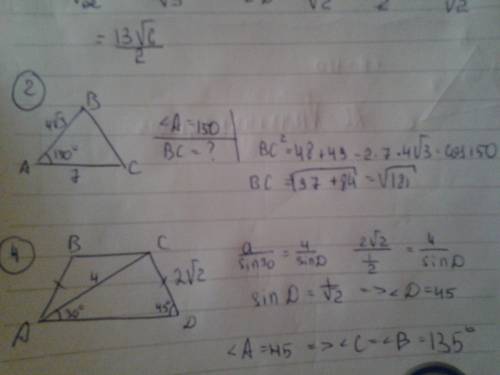 = 13√6 / 2
2
B
4√3
A 150° C
7
∠A = 150
BC = ?
BC² = 48 + 49 - 2·7·4√3·cos150
BC = √97 + 84 = √181
4
B C
4 2√2
A 30° 45° D
a / sin30 = 4 / sinD
2√2 / 1/2 = 4 / sinD
sinD = 1/√2 => ∠D = 45
∠A = 45 => ∠C = ∠B = 135°